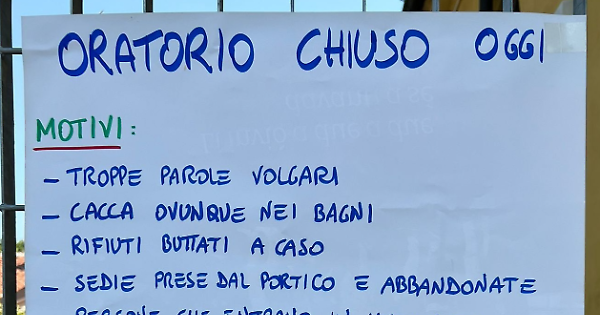 ORATORIO CHIUSO OGGI
MOTIVI:
– TROPPE PAROLE VOLGARI
– CACCA OVUNQUE NEI BAGNI
– RIFIUTI BUTTATI A CASO
– SEDIE PRESE DAL PORTICO E ABBANDONATE
– PERSONE CHE ENTRANO IN